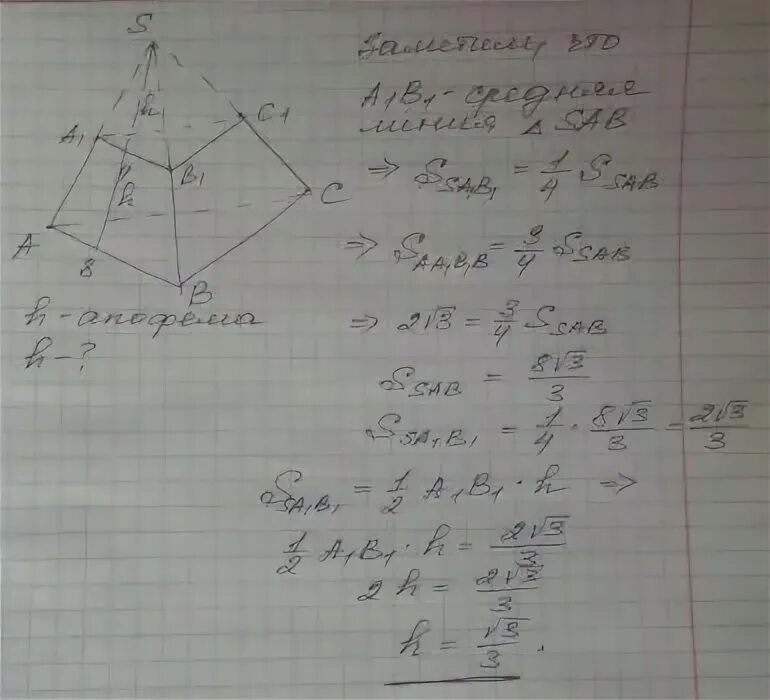 S
h
A₁
C₁
B₁
h
C
A
8
B
h - апофема
h - ?
Заметим, что
A₁B₁ - средняя
линия △ SAB
⇒ S_SA₁B₁ = 1/4 S_SAB
⇒ S_AA₁B₁B = 3/4 S_SAB
⇒ 2√3 = 3/4 S_SAB
S_SAB = 8√3/3
S_SA₁B₁ = 1/4 · 8√3/3 = 2√3/3
S_SA₁B₁ = 1/2 A₁B₁ · h ⇒
1/2 A₁B₁ · h = 2√3/3
2 h = 2√3/3
h = √3/3 .